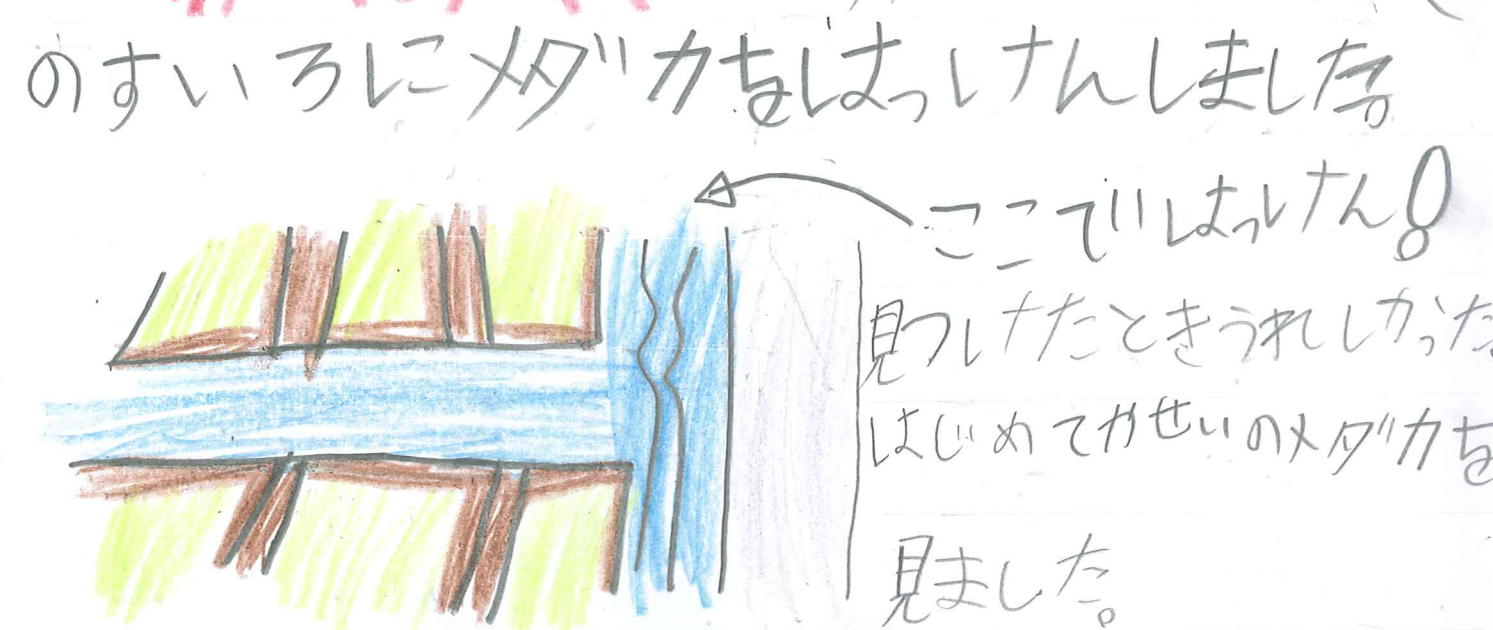 のすいろにメダカをはっけんしました。
ここではっけん!
見つけたときうれしかった。
はじめてやせいのメダカを
見ました。